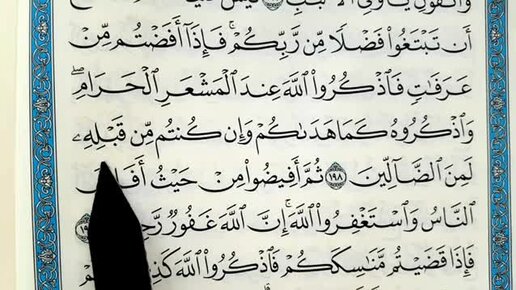 وَاتَّقُونِ يَٰٓأُو۟لِى ٱلْأَلْبَٰبِ لَيْسَ
أَن تَبْتَغُوا۟ فَضْلًا مِّن رَّبِّكُمْ ۚ فَإِذَآ أَفَضْتُم مِّنْ
عَرَفَٰتٍ فَٱذْكُرُوا۟ ٱللَّهَ عِندَ ٱلْمَشْعَرِ ٱلْحَرَامِ ۖ
وَٱذْكُرُوهُ كَمَا هَدَىٰكُمْ وَإِن كُنتُم مِّن قَبْلِهِۦ
لَمِنَ ٱلضَّآلِّينَ ١٩٨ ثُمَّ أَفِيضُوا۟ مِنْ حَيْثُ
ٱلنَّاسُ وَٱسْتَغْفِرُوا۟ ٱللَّهَ ۚ إِنَّ ٱللَّهَ غَفُورٌ
فَإِذَا قَضَيْتُم مَّنَٰسِكَكُمْ فَٱذْكُرُوا۟ ٱللَّهَ